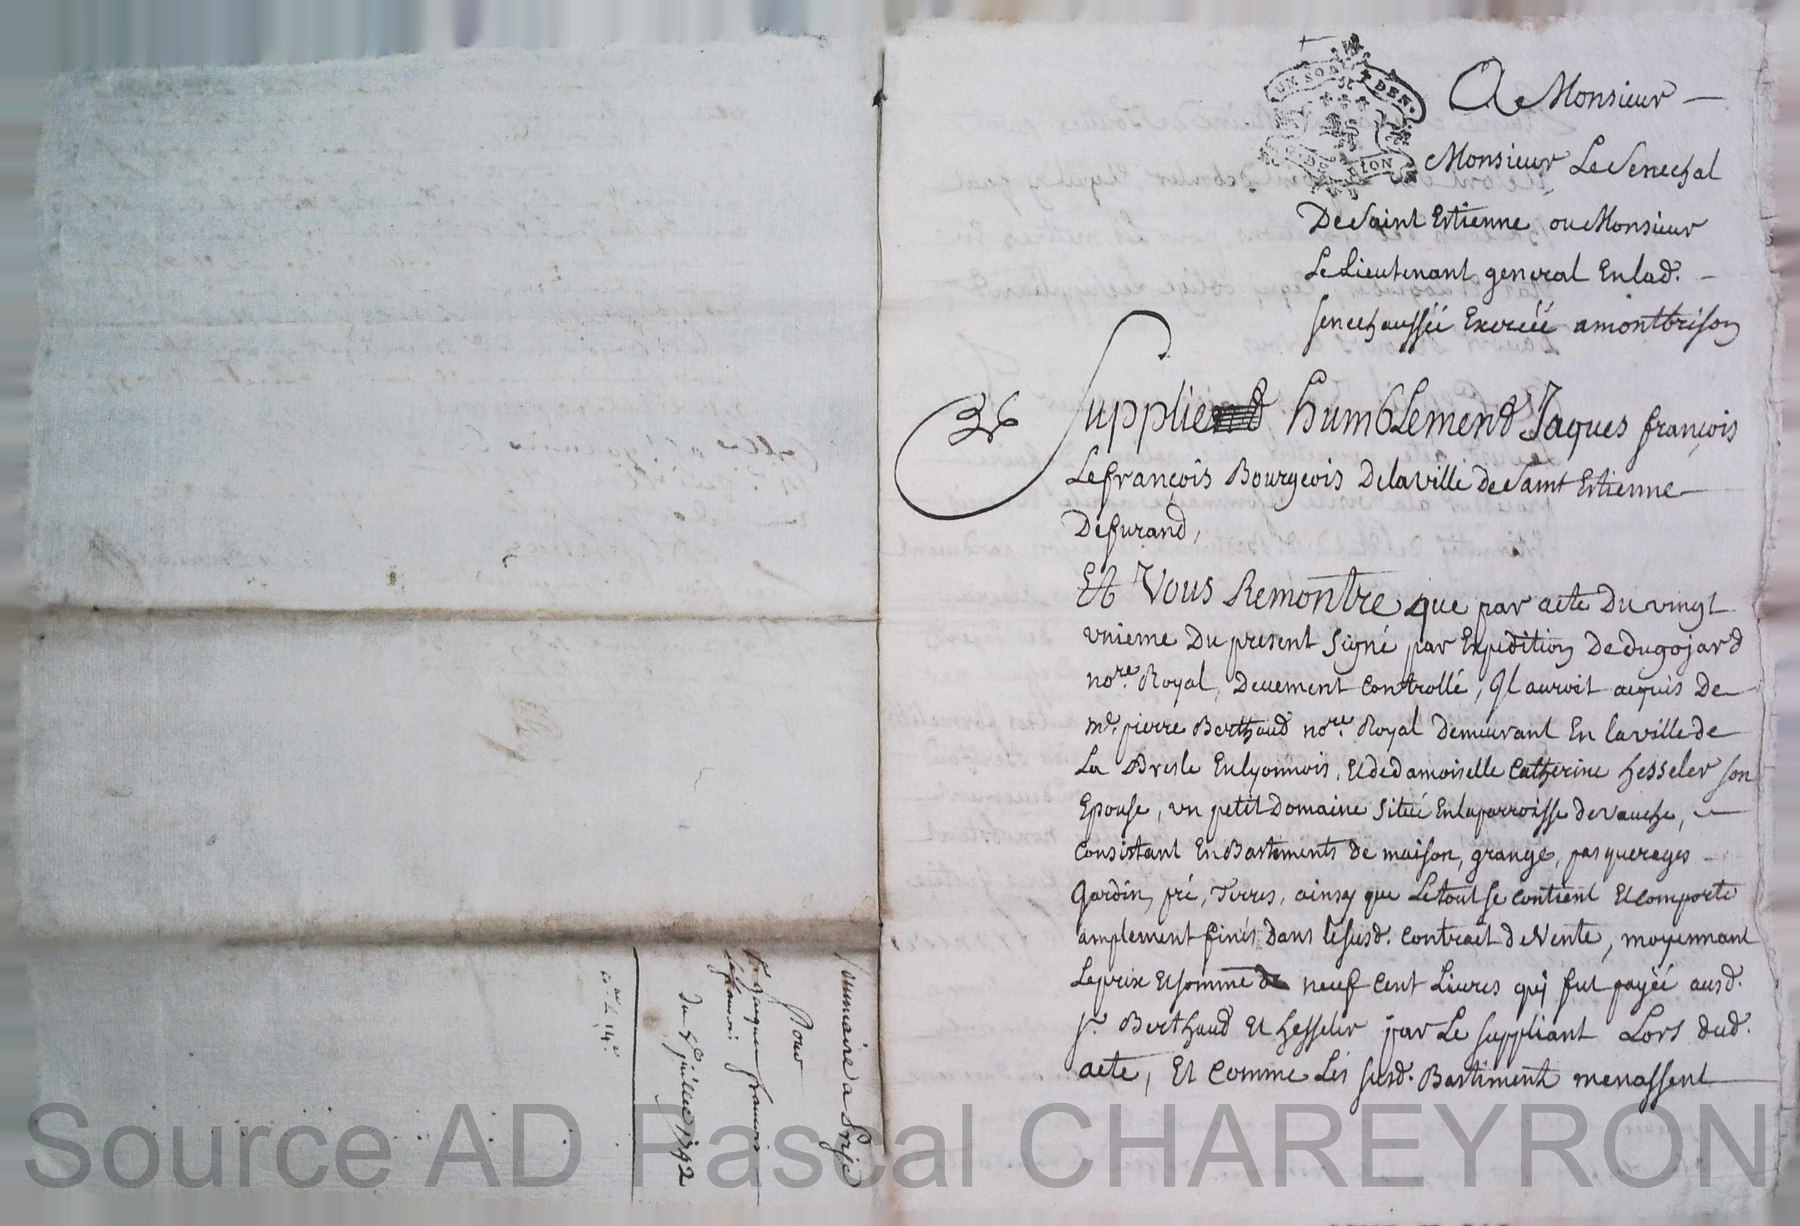 A Monsieur
Monsieur Le Senechal
De Saint Estienne ou Monsieur
Le Lieutenant general En lad.
senechaussée Exercée a montbrison
Supplie humblement Jaques françois
Lefrançois Bourgeois De la ville De Saint Estienne
De furand,
Et Vous Remontre que par acte Du vingt
unieme Du present signé par Expedition De dugojard
nore. Royal, Deuement Controllé, Il auroit acquis De
me. pierre Berthaud nore. Royal Demeurant En la ville de
La Bresle En lyonnois, Et de damoiselle Catherine hesseler son
Epouse, un petit Domaine Situé En la parroisse de vauche,
Consistant En Bastements de maison, grange, pasquerages
Jardin, pré, Terres, ainsy que Le tout se Contient Et Comporte
amplement finés Dans le susd. Contract de Vente, moyennant
Le prix Et somme de neuf Cent Livres qui fut payée ausd.
Sr. Berthaud Et hesseler par Le suppliant Lors dud.
acte, Et Comme Les susd. Bastiment menassent
Sommaire a Prise
Pour
Sr Jaques françois
Lefrancois
du 5e juillet 1742
UN SOL
DEN.
ION
Source AD Pascal CHAREYRON